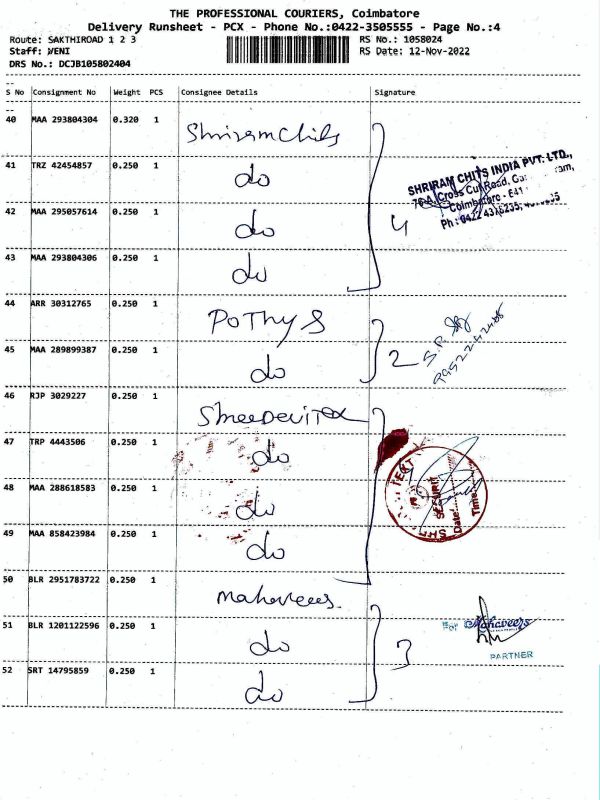 THE PROFESSIONAL COURIERS, Coimbatore
Delivery Runsheet - PCX - Phone No.:0422-3505555 - Page No.:4
Route: SAKTHIROAD 1 2 3 RS No.: 1058024
Staff: VENI RS Date: 12-Nov-2022
DRS No.: DCJB105802404
S No Consignment No Weight PCS Consignee Details Signature
40 MAA 293804304 0.320 1 Shriram Chits
41 TRZ 42454857 0.250 1 do
SHRIRAM CHITS INDIA PVT. LTD.,
76-A, Cross Cut Road,
Coimbatore - 641
42 MAA 295057614 0.250 1 do 4
Ph : 0422
43 MAA 293804306 0.250 1 do
44 ARR 30312765 0.250 1 PoThyS
45 MAA 289899387 0.250 1 do 2
46 RJP 3029227 0.250 1 ShreeDeviTex
47 TRP 4443506 0.250 1 do
TEXT
SECURIT
Date
Time
48 MAA 288618583 0.250 1 do
49 MAA 858423984 0.250 1 do
50 BLR 2951783722 0.250 1 Mahaveers.
51 BLR 1201122596 0.250 1 do
For Mahaveers
PARTNER
52 SRT 14795859 0.250 1 do 3